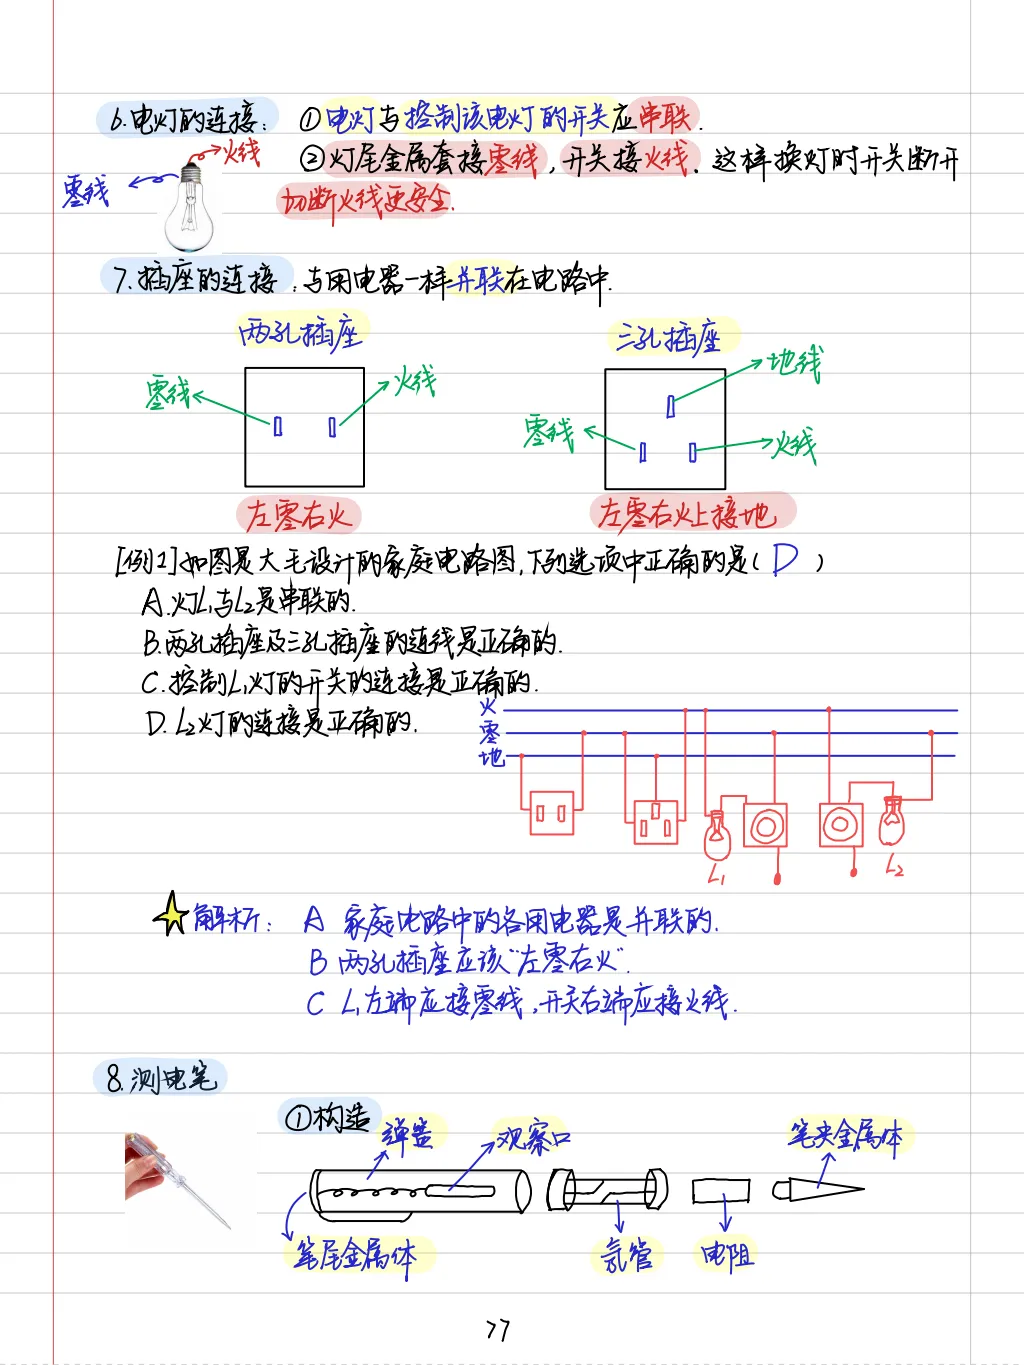 6.电灯的连接: ①电灯与控制该电灯的开关应串联.
火线
②灯尾金属套接零线,开关接火线.这样换灯时开关断开
零线
切断火线更安全.
7.插座的连接:与用电器一样并联在电路中.
两孔插座 三孔插座
地线
零线 火线
零线 火线
左零右火 左零右火上接地
[例1]如图是大毛设计的家庭电路图,下列选项中正确的是( D )
A.灯L1与L2是串联的.
B.两孔插座及三孔插座的连线是正确的.
C.控制L1灯的开关的连接是正确的.
D.L2灯的连接是正确的.
火
零
地
L1 L2
解析: A 家庭电路中的各用电器是并联的.
B 两孔插座应该“左零右火”.
C L1左端应接零线,开关右端应接火线.
8.测电笔
①构造
弹簧 观察口 笔尖金属体
笔尾金属体 氖管 电阻
77